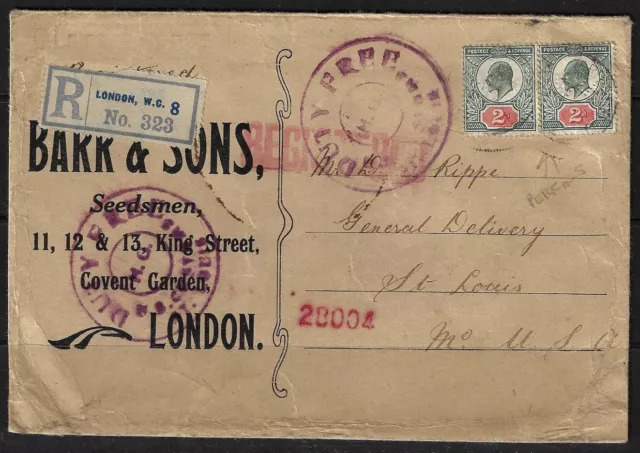 POSTAGE & REVENUE
POSTAGE & REVENUE
2D
2D
R
LONDON, W.C. 8
No. 323
DUTY FREE
REGISTERED
BARR & SONS,
Seedsmen,
11, 12 & 13, King Street,
Covent Garden,
LONDON.
DUTY FREE
Mr Rippe
General Delivery
St Louis
Mo U S A
28004
PERFINS